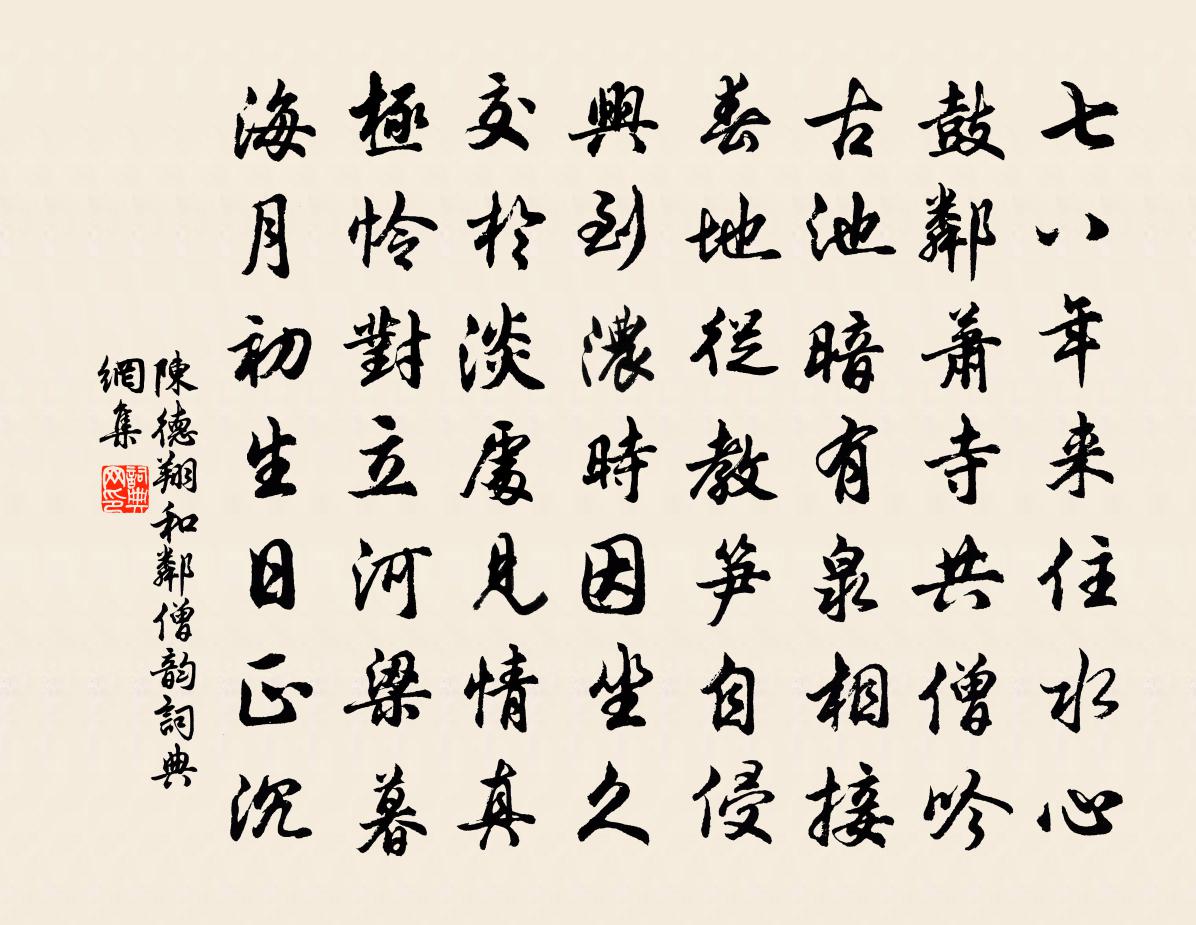 七八年来住水心
鼓鄰蕭寺共僧吟
古池暗有泉相接
春地從教笋自侵
興到濃時因坐久
交於淡處見情真
極憐對立河梁暮
海月初生日正沉
陳德翔和鄰僧韵詞典
網集
詞典网印